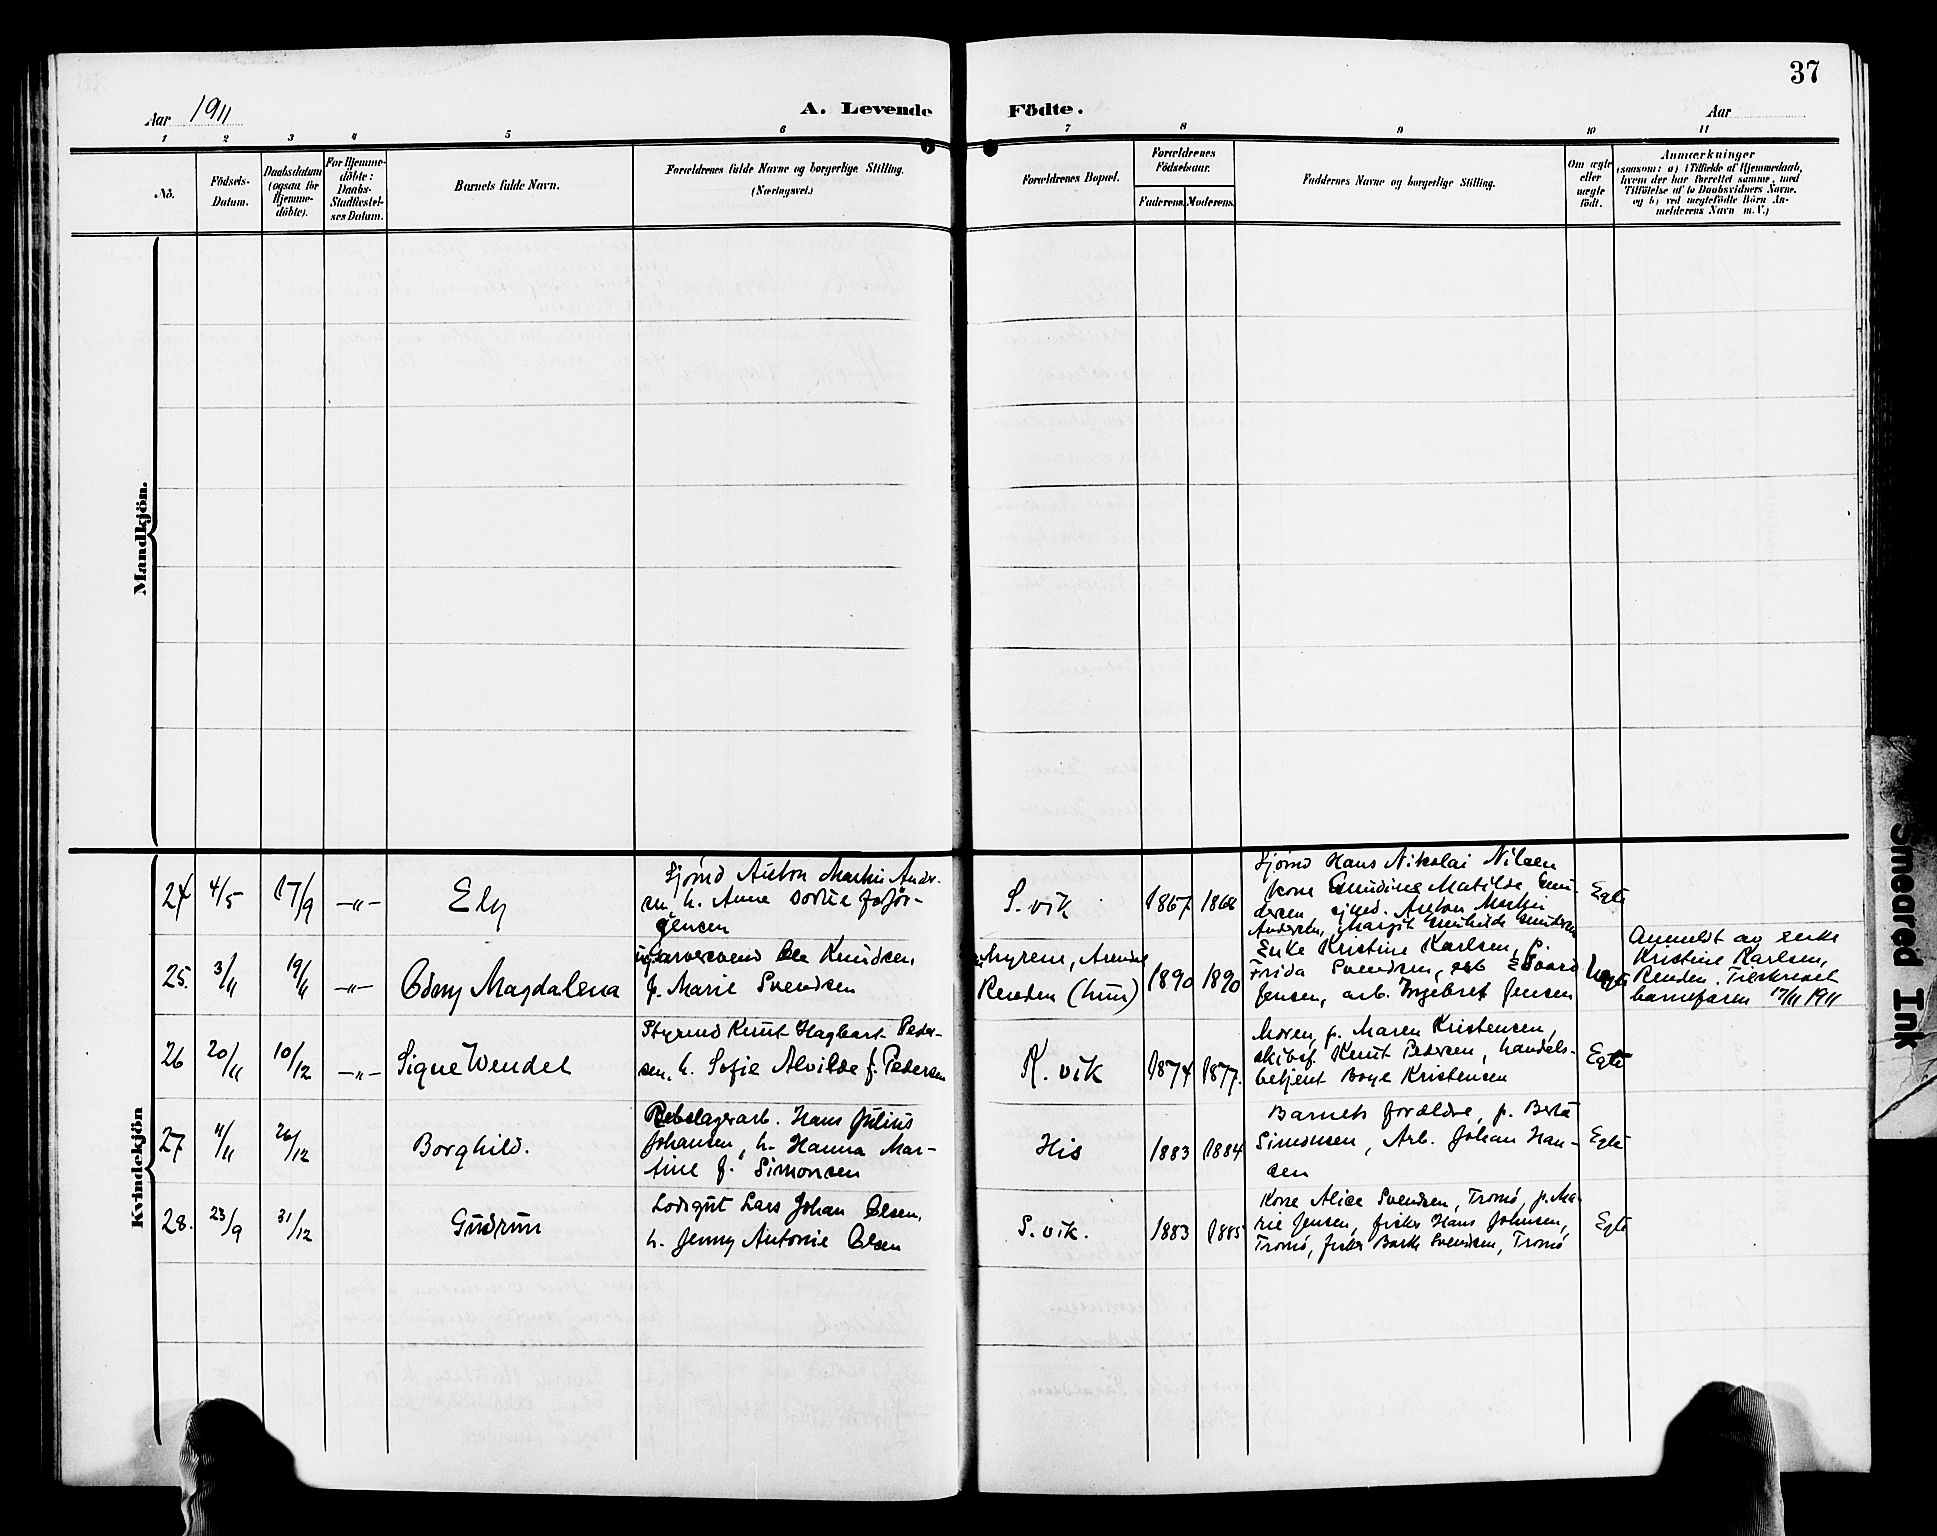 37
Aar 1911
A. Levende Födte.
Aar
1 2 3 4 5 6 7 8 9 10 11
Nö.
Födsels-
Datum.
Daabsdatum
(ogsaa for
Hjemme-
döbte).
For Hjemme-
döbte:
Daabs-
Stadfæstel-
ses Datum.
Barnets fulde Navn.
Forældrenes fulde Navne og borgerlige Stilling.
(Næringsvei.)
Forældrenes Bopæl.
Forældrenes
Födselsaar.
Faderens. Moderens.
Faddernes Navne og borgerlige Stilling.
Om ægte
eller
uægte
födt.
Anmærkninger
(saasom: a) i Tilfælde af Hjemmedaab,
hvem der har forrettet samme, med
Tilföielse af to Daabsvidners Navne.
og b) ved uægtefödte Börn An-
melderens Navn m. V.)
Mandkjön.
Kvindekjön
24 4/5 17/9 -"- Ely
Sjömd Anton Martin Ander-
sen h. Anne Dortie f. Jör-
gensen
S. vik 1867 1868
Sjömd Hans Nikolai Nilsen
kone Gundine Matilde Gun-
dersen, sjmd. Anton Martin
Andersen, Margit
Egte
25. 3/11 19/11 -"- Odny Magdalena
ugGarversvend Ole Knudsen
p. Marie Svendsen
Myrene, Arendal
Revden (hun)
1890 1890
Enke Kristine Karlsen, p.
Frida Svendsen, arb Edvard
Jensen, arb. Ingebret Jensen
Uegte
Anmeldt av enke
Kristine Karlsen,
Revden. Tilskrevet
barnefaren 17/11 1911
26 20/11 10/12 -"- Signe Wendel
Styrmd Knut Hagbart Peder-
sen h. Sofie Alvilde f. Pedersen
K. vik 1874 1877.
Moren, p. Maren Kristensen,
skibsf Knut Pedersen, handels-
betjent Boye Kristensen
Egte
27 4/11 26/12 Borghild.
Rebslagerarb. Hans Julius
Johansen, h. Hanna Mar-
tine f. Simonsen
His 1883 1884
Barnets forældre, p. Berta
Simonsen, Arb. Johan Han-
sen
Egte
28. 23/9 31/12 Gudrun
Lodsgut Lars Johan Olsen,
h. Jenny Antonie Olsen
S. vik. 1883 1885
Kone Alice Svendsen, Tromö, p. Ma-
rie Jensen, fisker Hans Johnsen,
Tromö, fisker Svendsen, Tromö
Egte
Smeared Ink